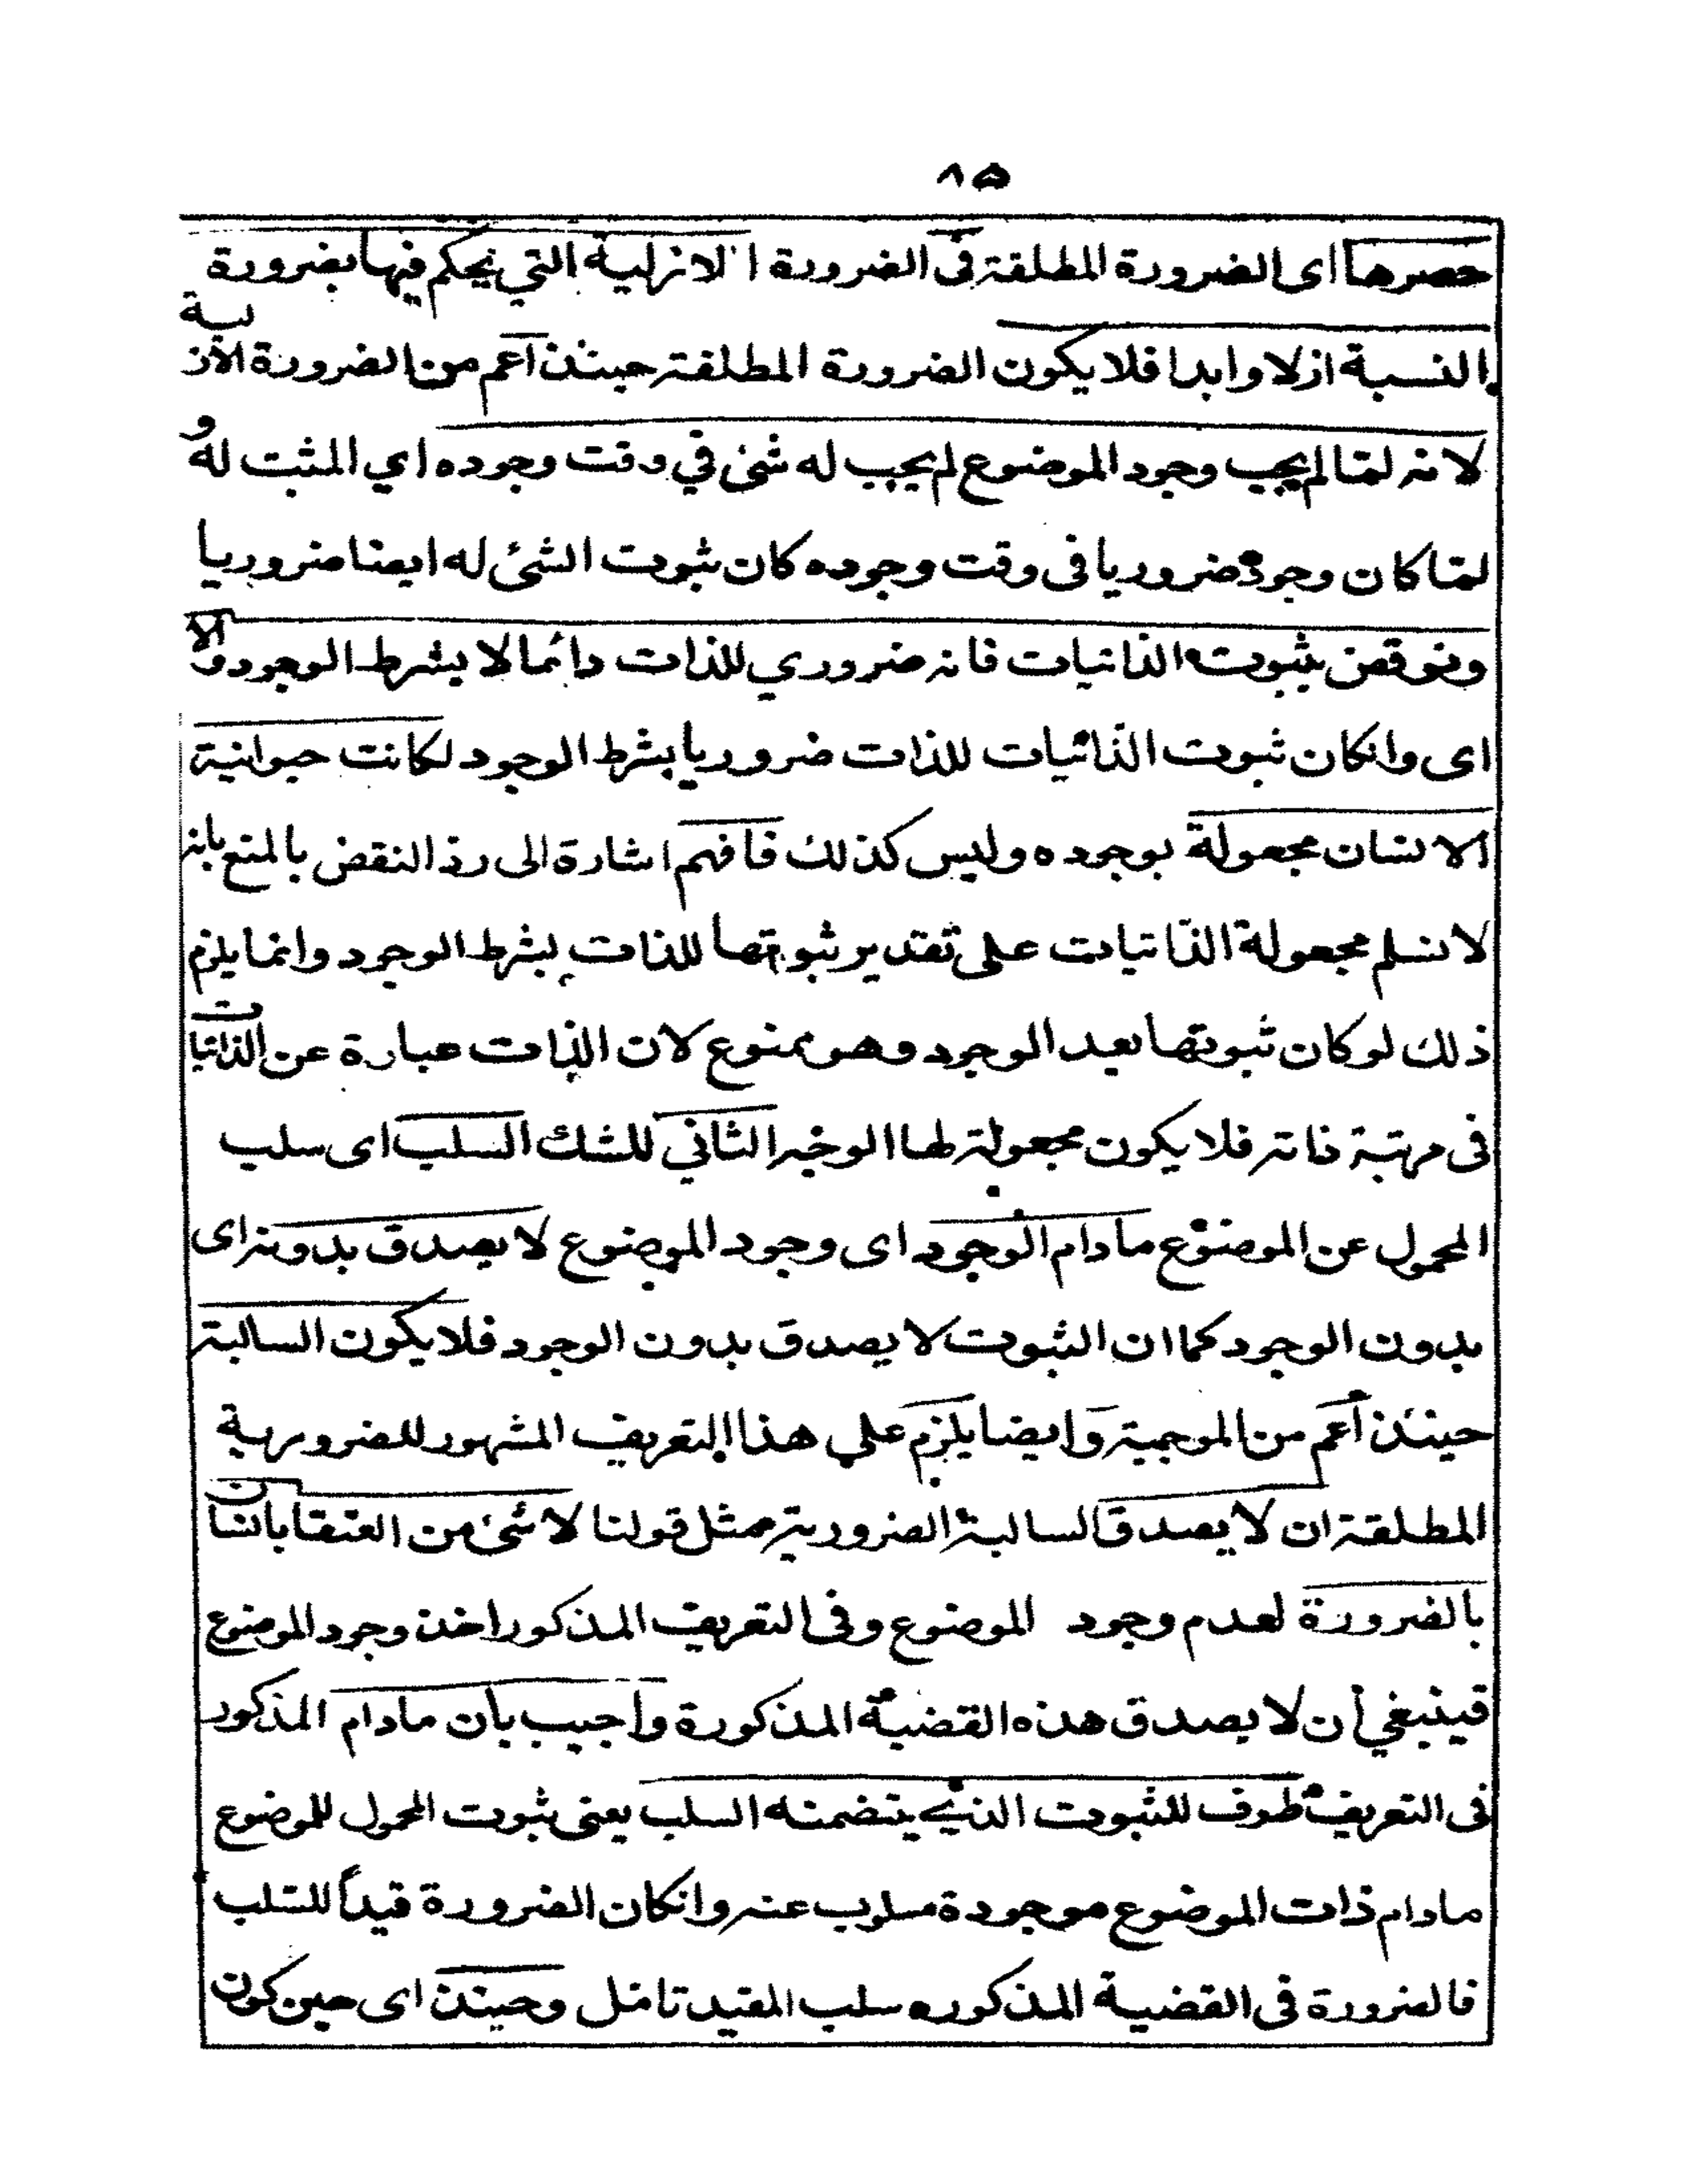 ٨٥
حصرها اى الضرورة المطلقة فى الضرورة الازلية التي يحكم فيها بضرورة
النسبة ازلا وابدا فلا يكون الضرورة المطلقة حينئذ أعم من الضرورة الازلية
لانه لمّا لم يجب وجود الموضوع لم يجب له شئ في وقت وجوده اي المثبت له و
لمّا كان وجوده ضروريا فى وقت وجوده كان ثبوت الشئ له ايضا ضروريا
ونوقض بثبوت الذاتيات فانه ضروري للذات دائما لا بشرط الوجود والا
اى وانكان ثبوت الذاتيات للذات ضروريا بشرط الوجود لكانت حيوانية
الانسان مجعولة بوجوده وليس كذلك فافهم اشارة الى ردّ النقض بالمنع بانه
لا نسلم مجعولة الذاتيات على تقدير ثبوتها للذات بشرط الوجود وانما يلزم
ذلك لو كان ثبوتها بعد الوجود وهو ممنوع لان الذات عبارة عن الذاتيات
فى مرتبة ذاته فلا يكون مجعولة لها الوخير الثاني للشك السلب اى سلب
المحمول عن الموضوع مادام الوجود اى وجود الموضوع لا يصدق بدونه اى
بدون الوجود كما ان الثبوت لا يصدق بدون الوجود فلا يكون السالبة
حينئذ أعم من الموجبة وايضا يلزم علي هذا التعريف المشهور للضرورية
المطلقة ان لا يصدق السالبة الضرورية مثل قولنا لا شئ من العنقا بانسان
بالضرورة لعدم وجود الموضوع وفى التعريف المذكور اخذ وجود الموضوع
فينبغي أن لا يصدق هذه القضية المذكورة واجيب بأن مادام المذكور
فى التعريف ظرف للثبوت الذي يتضمنه السلب يعنى ثبوت المحمول للموضوع
مادام ذات الموضوع موجودة مسلوب عنه وانكان الضرورة قيداً للسّلب
فالضرورة فى القضية المذكوره سلب المقيد تامّل وحينئذ اى حين كون